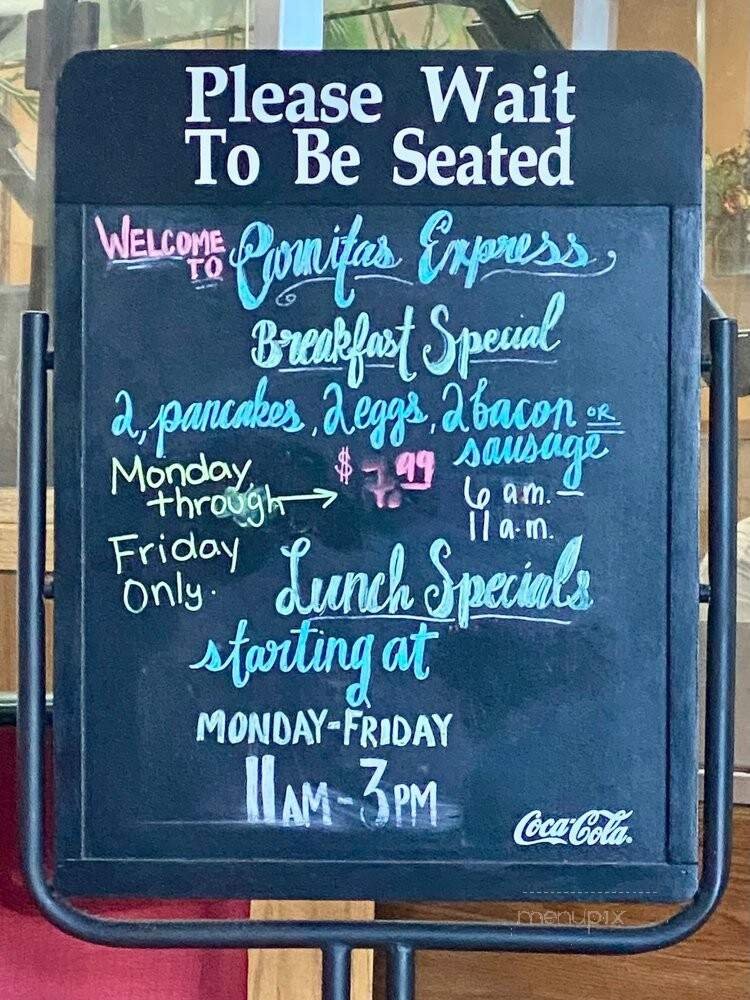 Please Wait
To Be Seated
WELCOME TO Carnitas Express
Breakfast Special
2, pancakes, 2 eggs, 2 bacon OR
sausage
Monday
through → $ .99
6 am. –
11 a.m.
Friday
Only.
Lunch Specials
starting at
MONDAY-FRIDAY
11AM - 3PM
Coca-Cola
menupix